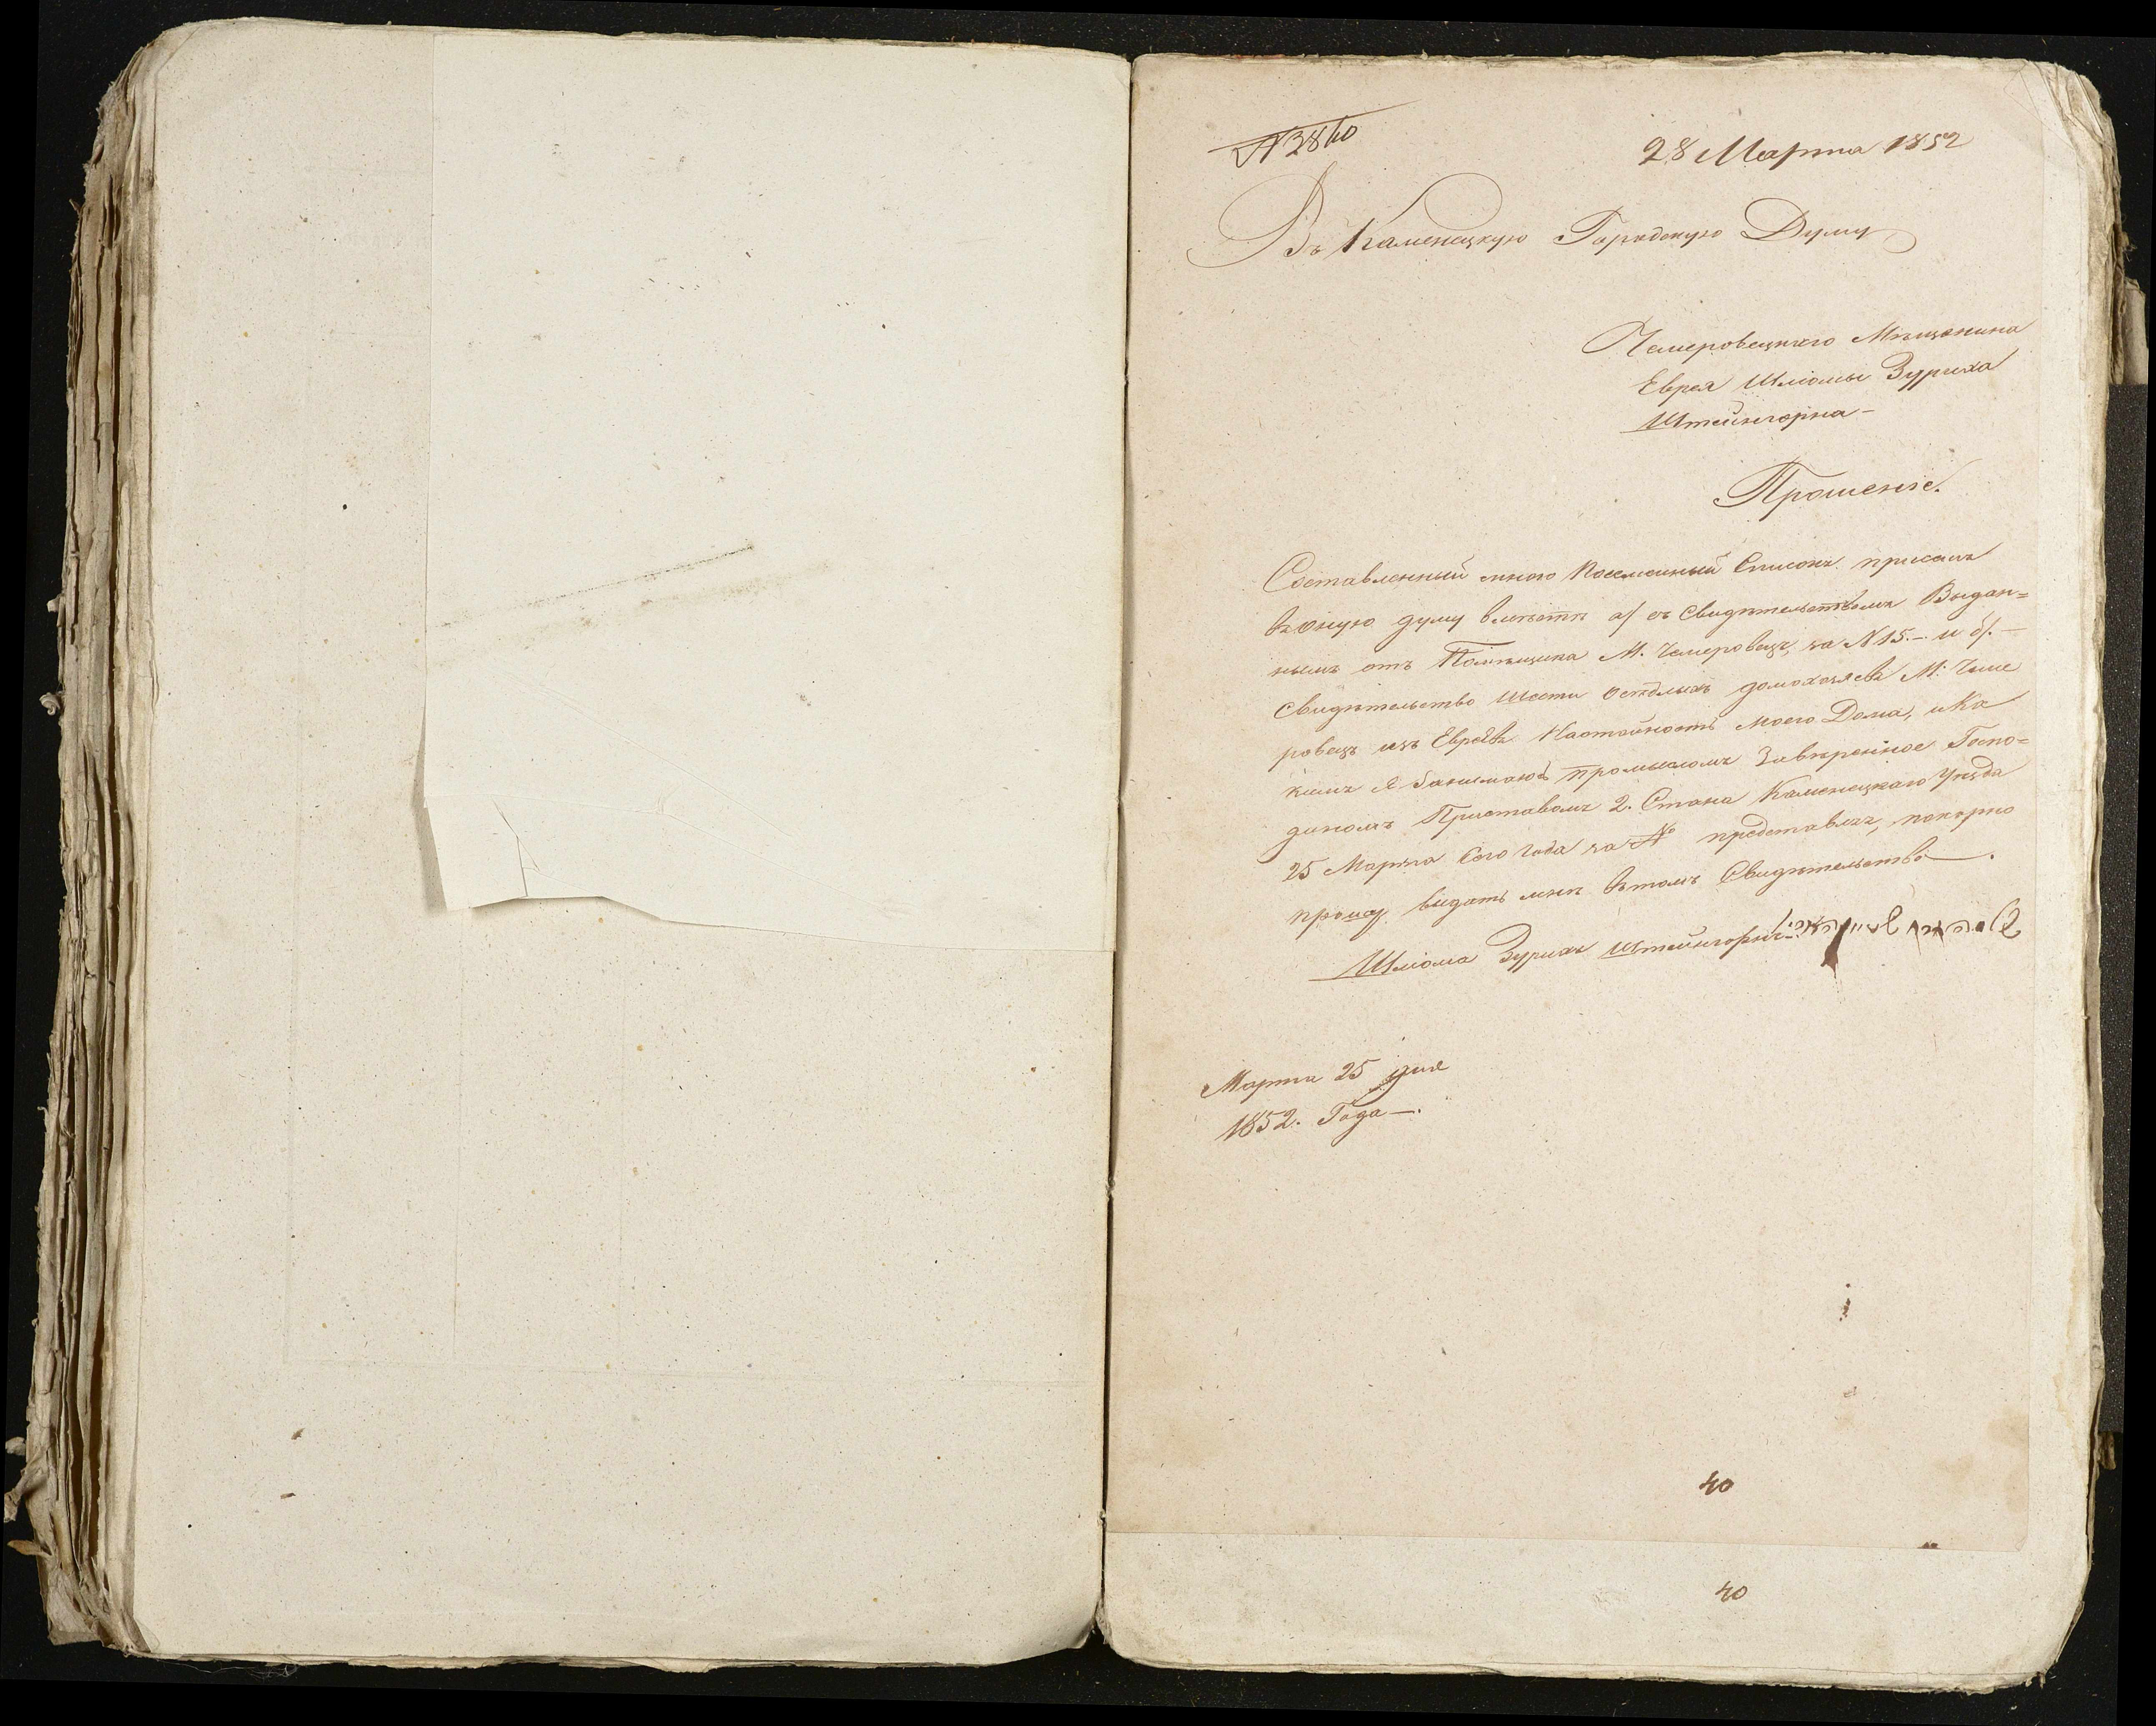 № 3840
28 Марта 1852
Въ Каменецкую Городскую Думу
Чемеровецкаго Мѣщанина
Еврея Шліомы Зуриха
Штейнгорна –
Прошеніе.
Составленный мною Посемейный Списокъ при семъ
въ оную думу вмѣстѣ а/ съ Свидѣтельствомъ Выдан=
нымъ отъ Помѣщика М. Чемеровецъ, за N 15. – и б/. –
Свидѣтельство шести осѣдлыхъ домохозяевъ М: Чеме
ровецъ изъ Евреевъ На стойность моего Дома, и Ка
кимъ я занимаюсь промысломъ Завѣренное Госпо=
диномъ Приставомъ 2. Стана Каменецкаго Уѣзда
25 Марта сего года за № представляя, покорно
прошу выдать мнѣ въ томъ Свидѣтельство –.
Шліома Зурихъ Штейнгорнъ
Марта 25 дня
1852. Года –.
40
40